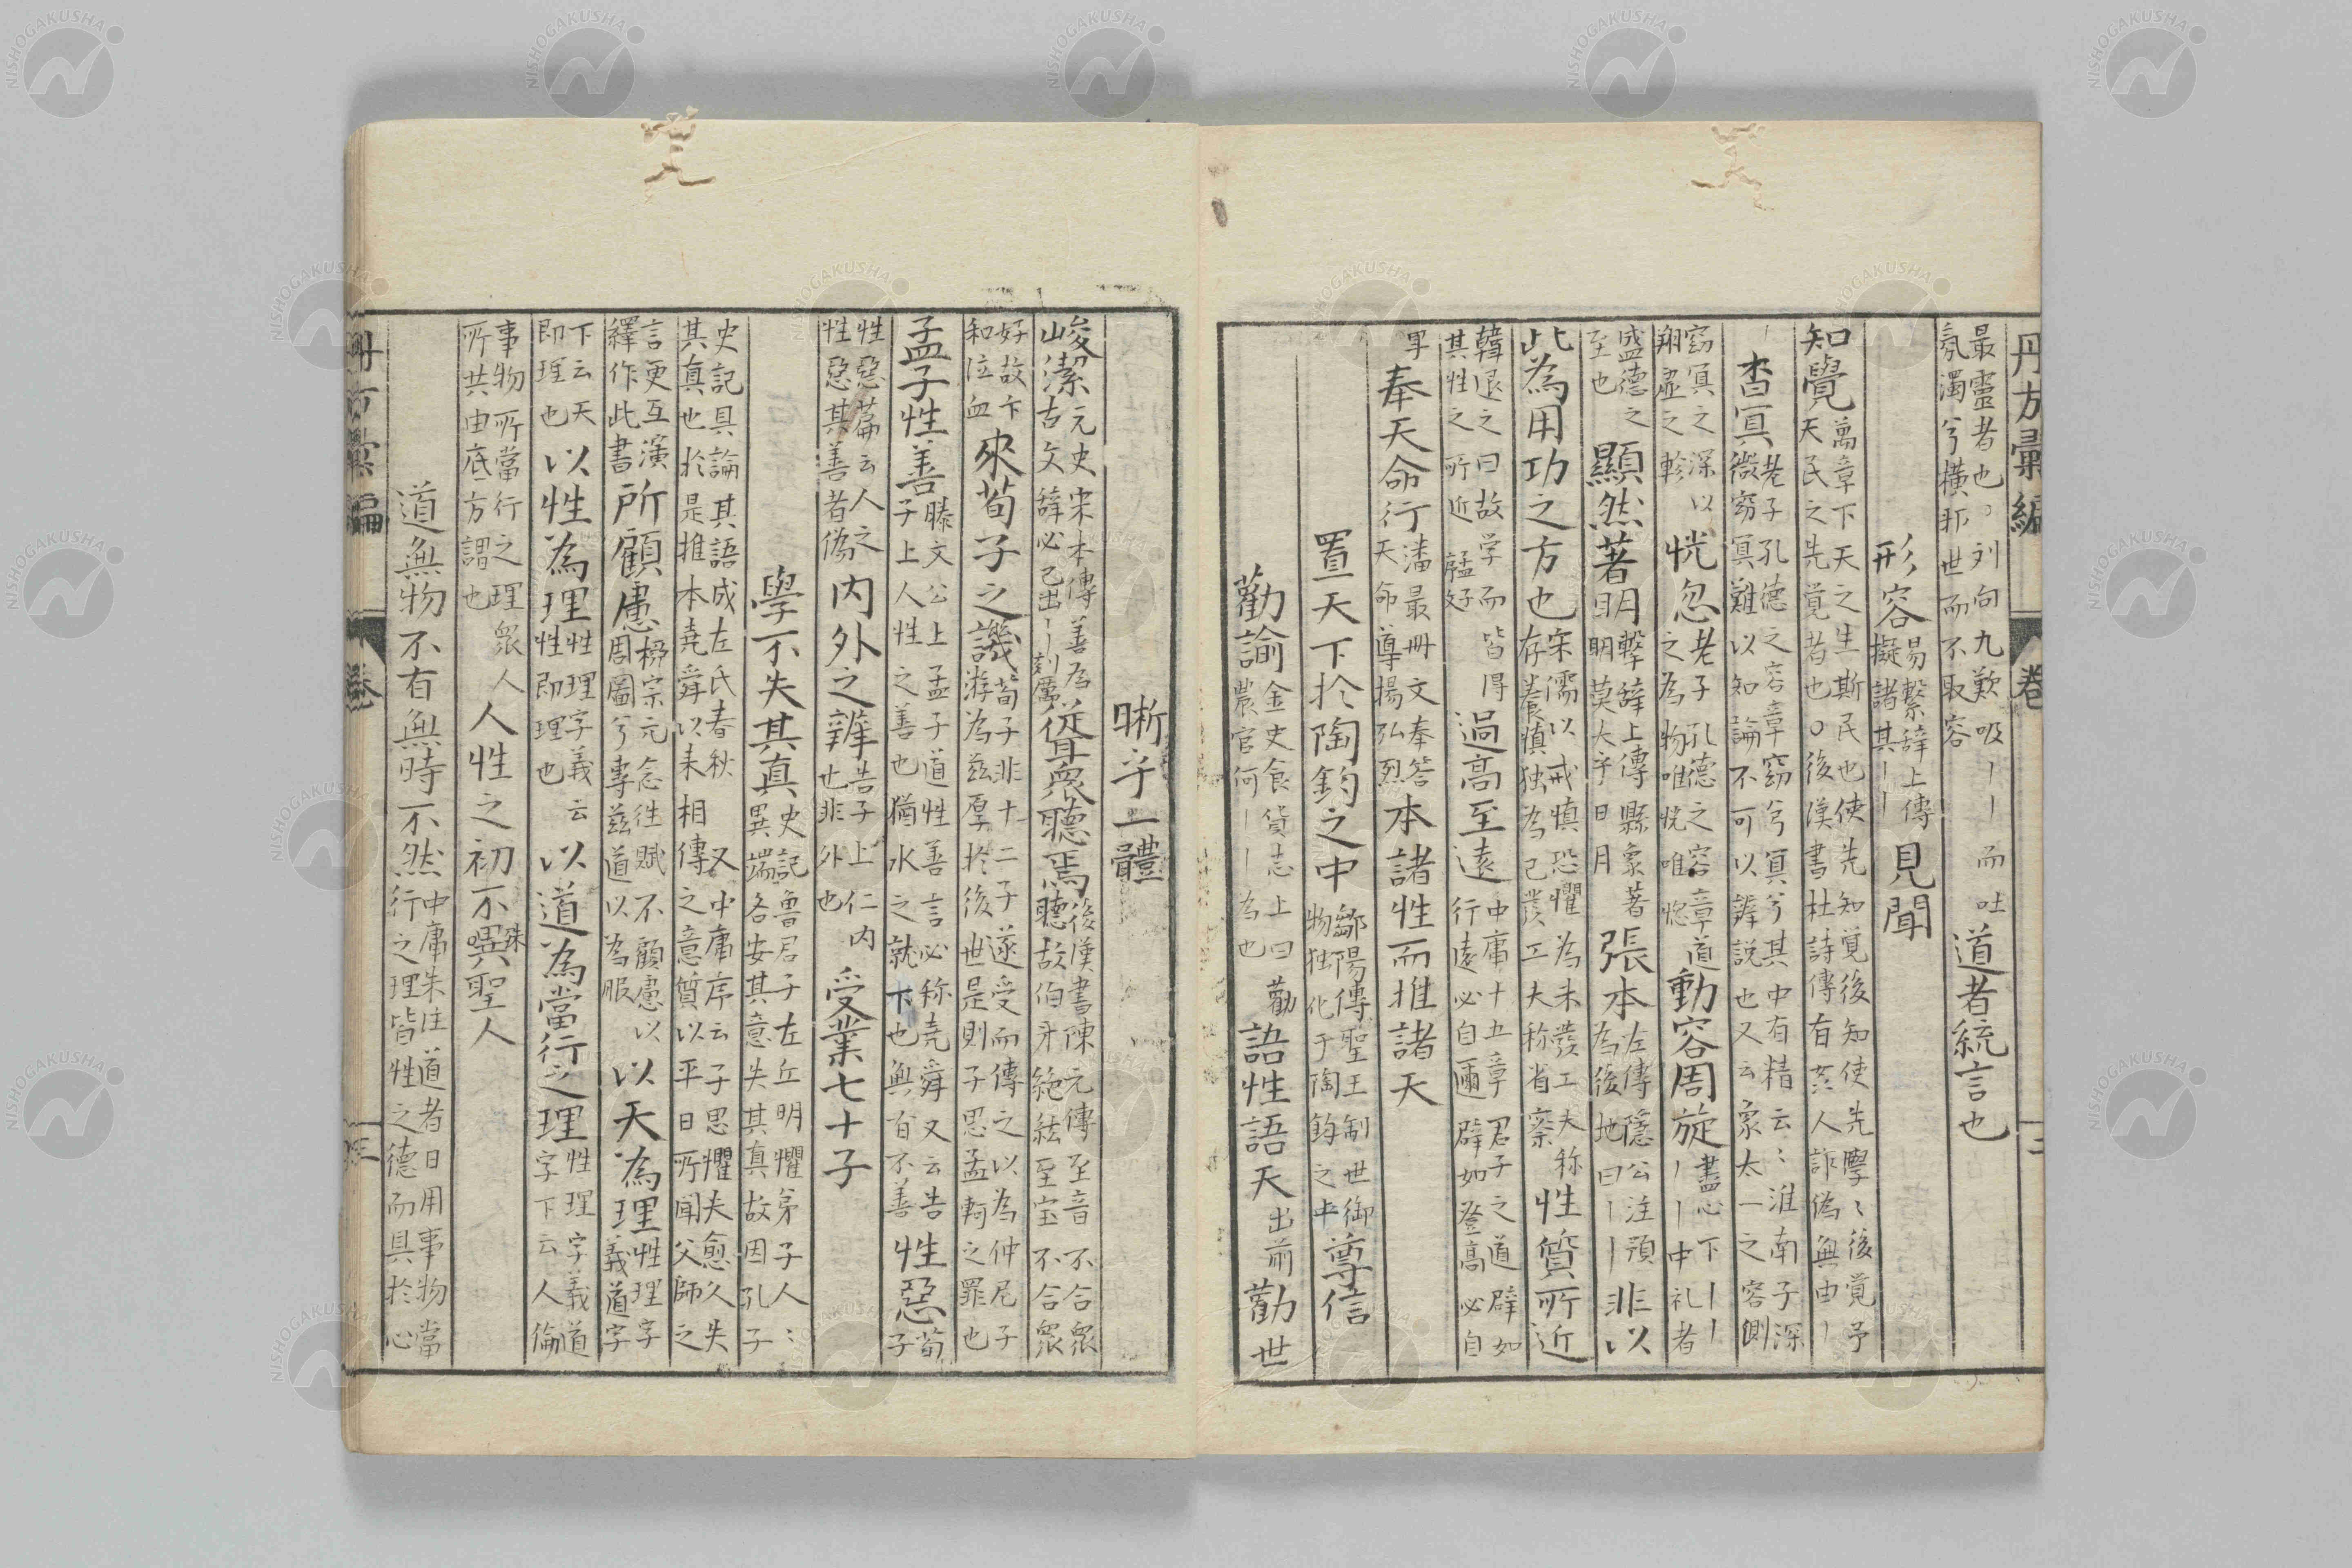 丹方彙編 卷
最靈者也、列向九歎吸――而吐
氛濁兮橫邪世而不取容
道者統言也
形容
易繫辞上傳
擬諸其――
見聞
知覺
萬章下天之生斯民也使先知覚後知使先覺〻後覚予
天民之先覚者也〇後漢書杜詩傳有玄人詐偽無由―
―
杳冥
老子孔德之容章窈兮冥兮其中有精云〻淮南子深
微窈冥難以知論不可以辨説也又云象太一之容測
窈冥之深以
翔虛之軫
恍忽
老子孔德之容章道
之為物唯恍唯惚
動容周旋
盡心下――
――中礼者
盛德之
至也
顯然著明
繫辞上傳縣象著
明莫大乎日月
張本
左傳隱公注預
為後地曰――
非以
此為用功之方也
宋儒以戒慎恐懼為未發工夫称
存養慎独為已發工夫称省察
性質所近
韓退之曰故学而皆得
其性之所近
過高至遠
中庸十五章君子之道辟如
行遠必自邇辟如登高必自
卑
奉天命行
潘最册文奉答
天命導揚弘烈
本諸性而推諸天
置天下於陶鈞之中
鄒陽傳聖王制世御
物独化于陶鈞之上
尊信
勸諭
金史食貨志上曰勸
農官何――為也
語性語天
出前
勸世
晰乎一體
峻潔
元史宋本傳善為
古文辞必己出―刻厲
聳衆聽焉
後漢書陳元傳至音不合衆
聴故伯牙絶絃至宝不合衆
好故卞
和泣血
來荀子之譏
荀子非十二子遂受而傳之以為仲尼子
游為玆厚於後世是則子思孟軻之罪也
孟子性善
滕文公上孟子道性善言必称尭舜又云告
子上人性之善也猶水之就下也無有不善
性惡
荀
子
性惡篇云人之
性惡其善者偽
内外之辨
告子上仁内
也非外也
受業七十子
學不失其真
史記魯君子左丘明懼弟子人〻
異端各安其意失其真故因孔子
史記具論其語成左氏春秋又中庸序云子思懼夫愈久失
其真也於是推本尭舜以来相傳之意質以平日所聞父師之
言更互演
繹作此書
所顧慮
柳宗元念徃賦不顧慮以
周圖兮専玆道以為服
以天為理
性理字
義道字
下云天
即理也
以性為理
性理字義云
性即理也
以道為當行之理
性理字義道
字下云人倫
事物所當行之理衆人
所共由底方謂也
人性之初不
殊
異聖人
道無物不有無時不然
中庸朱注道者日用事物當
行之理皆性之德而具於心
丹方彙編 卷